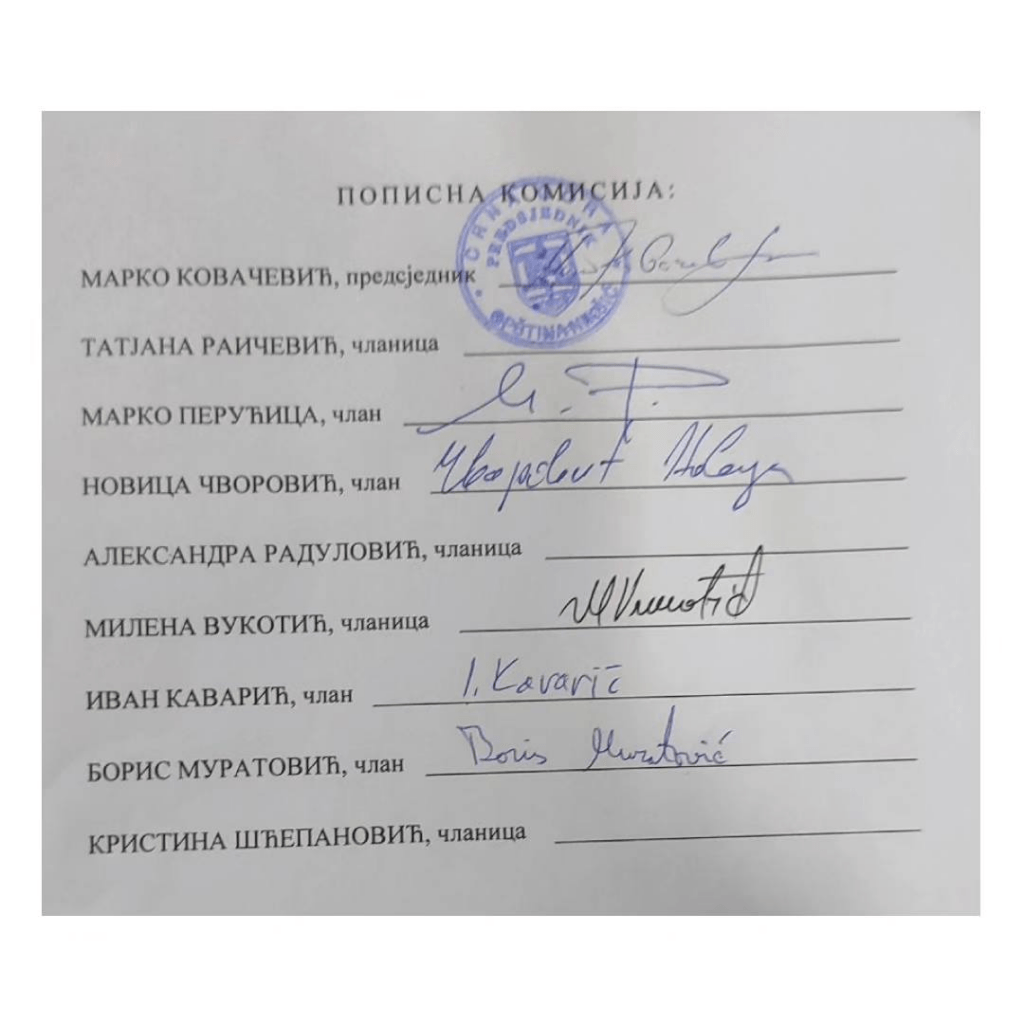 ПОПИСНА КОМИСИЈА:
CRNA GORA
PREDSJEDNIK
OPŠTINA NIKŠIĆ
МАРКО КОВАЧЕВИЋ, предсједник
ТАТЈАНА РАИЧЕВИЋ, чланица
МАРКО ПЕРУЋИЦА, члан
НОВИЦА ЧВОРОВИЋ, члан
АЛЕКСАНДРА РАДУЛОВИЋ, чланица
МИЛЕНА ВУКОТИЋ, чланица
ИВАН КАВАРИЋ, члан I. Kavarić
БОРИС МУРАТОВИЋ, члан Boris Muratović
КРИСТИНА ШЋЕПАНОВИЋ, чланица